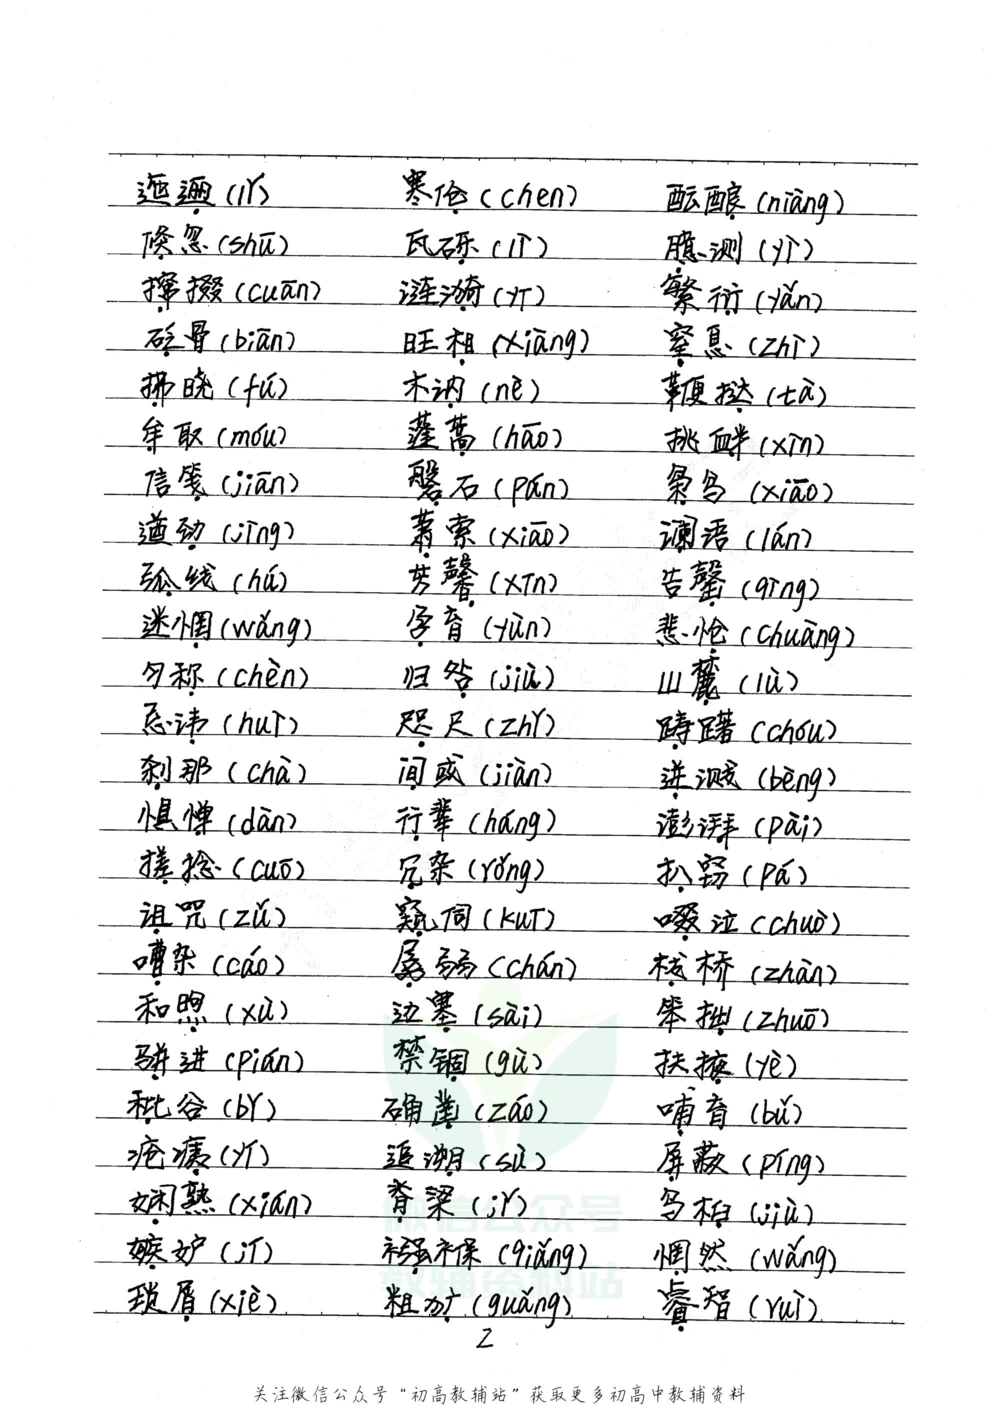 迤逦(lǐ) 寒伧(chen) 酝酿(niàng)
倏忽(shū) 瓦砾(lì) 臆测(yì)
撺掇(cuān) 涟漪(yī) 繁衍(yǎn)
砭骨(biān) 旺相(xiàng) 窒息(zhì)
拂晓(fú) 木讷(nè) 鞭挞(tà)
牟取(móu) 蓬蒿(hāo) 挑衅(xìn)
信笺(jiān) 磐石(pán) 枭鸟(xiāo)
遒劲(jìng) 萧索(xiāo) 谰语(lán)
弧线(hú) 芳馨(xīn) 告罄(qìng)
迷惘(wǎng) 孕育(yùn) 悲怆(chuàng)
匀称(chèn) 归咎(jiù) 山麓(lù)
忌讳(huì) 咫尺(zhǐ) 踌躇(chóu)
刹那(chà) 间或(jiàn) 迸溅(bèng)
惧惮(dàn) 行辈(háng) 澎湃(pài)
搓捻(cuō) 冗杂(rǒng) 扒窃(pá)
诅咒(zǔ) 窥伺(kuī) 啜泣(chuò)
嘈杂(cáo) 孱弱(chán) 栈桥(zhàn)
和煦(xù) 边塞(sài) 笨拙(zhuō)
骈进(pián) 禁锢(gù) 扶掖(yè)
秕谷(bǐ) 确凿(záo) 哺育(bǔ)
疮痍(yí) 追溯(sù) 屏蔽(píng)
娴熟(xián) 脊梁(jǐ) 乌桕(jiù)
嫉妒(jí) 襁褓(qiǎng) 惘然(wǎng)
琐屑(xiè) 粗犷(guǎng) 睿智(ruì)
2
微信公众号
教辅资料站
关注微信公众号“初高教辅站”获取更多初高中教辅资料